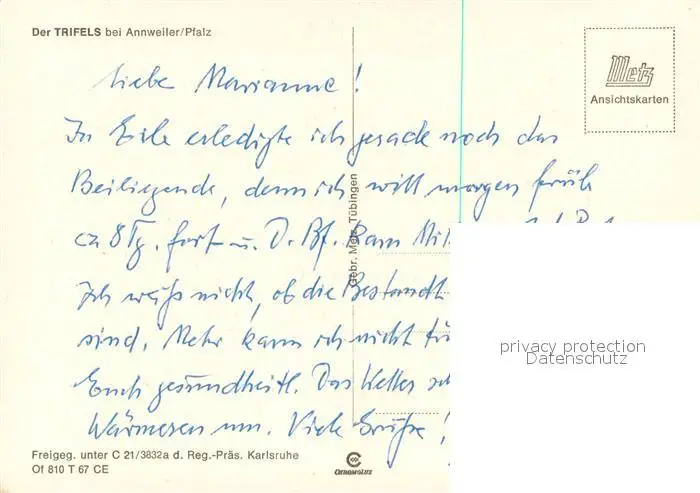 Der TRIFELS bei Annweiler/Pfalz
Metz
Ansichtskarten
Liebe Marianne!
In Eile erledigte ich gerade noch das
Beiliegende, denn ich will morgen früh
ca 8 Tg. fort u. D. Bf. kam
Ich weiß nicht, ob die
sind. Mehr kann ich nicht
Euch gesundheitl. Das Wetter
um. Viele Grüße!
Gebr. Metz, Tübingen
privacy protection
Datenschutz
Freigeg. unter C 21/3832a d. Reg.-Präs. Karlsruhe
Of 810 T 67 CE
CHROMOLUX